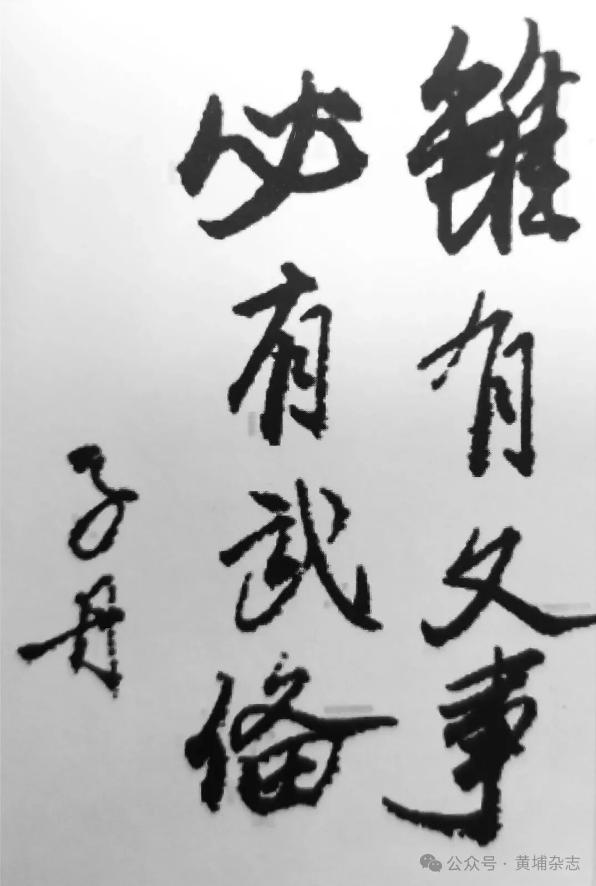 雖有文事
必有武備
子丹
公众号 · 黄埔杂志